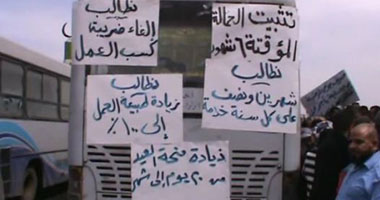 تثبيت العمالة
المؤقتة ٦ شهور
نطالب
إلغاء ضريبة
كسب العمل
نطالب
شهرين ونصف
على كل سنة خدمة
نطالب
زيادة طبيعة العمل
إلى ١٠٠٪
زيادة منحة العيد
من ٢٠ يوم إلى شهر